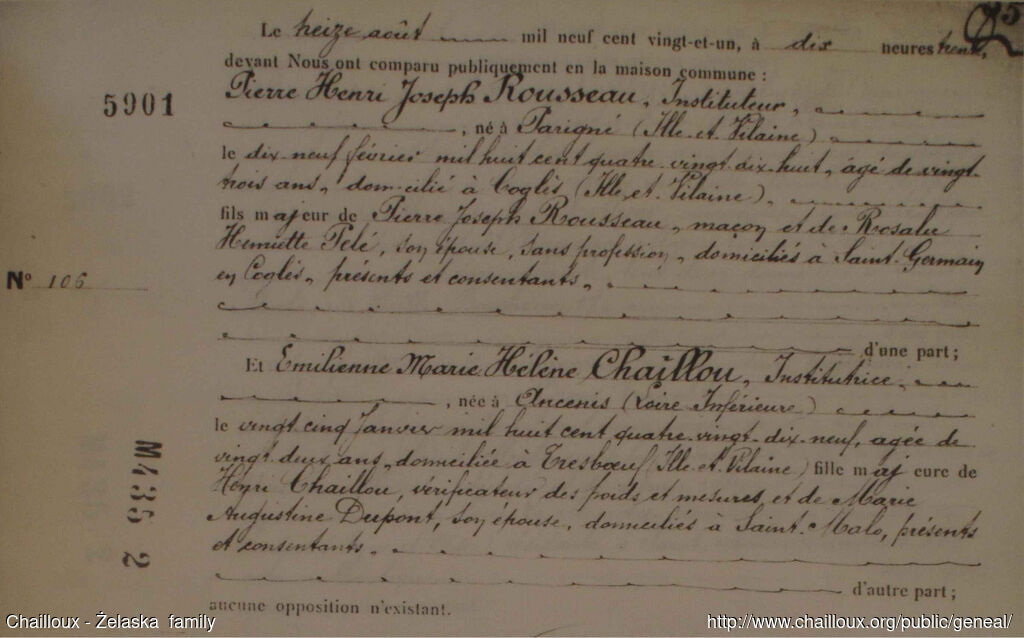 75
Le treize août mil neuf cent vingt-et-un, à dix heures trente,
devant Nous ont comparu publiquement en la maison commune :
5901
Pierre Henri Joseph Rousseau, Instituteur,
, né à Parigné (Ille-et-Vilaine)
le dix-neuf février mil huit cent quatre-vingt-dix-huit, âgé de vingt-
trois ans, domicilié à Coglès (Ille-et-Vilaine),
fils majeur de Pierre Joseph Rousseau, maçon et de Rosalie
Henriette Pelé, son épouse, sans profession, domiciliés à Saint-Germain
en Coglès, présents et consentants,
N° 106
d'une part ;
Et Emilienne Marie Hélène Chaillou, Institutrice,
, née à Ancenis (Loire Inférieure)
le vingt cinq Janvier mil huit cent quatre-vingt-dix-neuf, agée de
vingt deux ans, domiciliée à Tresbœuf (Ille-et-Vilaine) fille majeure de
Henri Chaillou, vérificateur des poids et mesures, et de Marie
Augustine Dupont, son épouse, domiciliés à Saint-Malo, présents
et consentants,
M435 2
d'autre part ;
aucune opposition n'existant.
Chailloux - Żelaska family
http://www.chailloux.org/public/geneal/